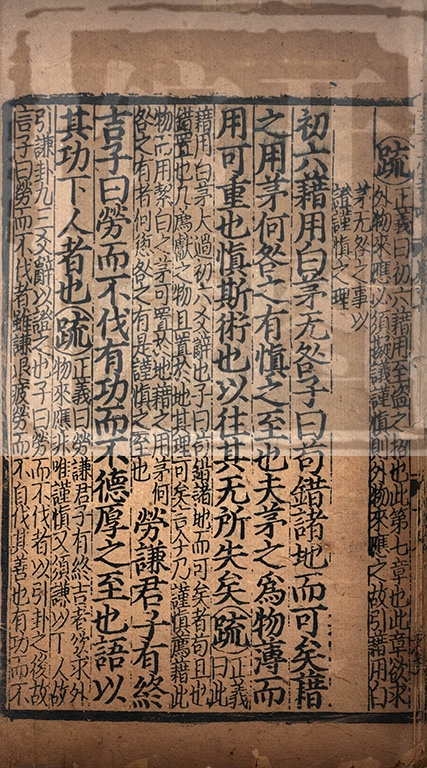 疏正義曰初六藉用至盜之招也此第七章也此章欲求
外物來應必須擬議謹慎則外物來應之故引藉用白
茅无咎之事以
證謹慎之理
初六藉用白茅无咎子曰苟錯諸地而可矣藉
之用茅何咎之有慎之至也夫茅之為物薄而
用可重也慎斯術也以往其无所失矣疏正義
曰此
藉用白茅大過初六爻辭也子曰苟錯諸地而可矣者苟且也
錯置也凡為獻之物且置於地其理可矣言今乃謹慎薦藉此
物而用絜白之茅可置於地藉之用茅何
咎之有者何愆咎之有是謹慎之至也
勞謙君子有終
吉子曰勞而不伐有功而不德厚之至也語以
其功下人者也疏正義曰勞謙君子有終吉者欲求外
物來應非唯謹慎又須謙以下人故
引謙卦九三爻辭以證之也子曰勞而不伐者以引卦之後故
言子曰勞而不伐者雖謙退疲勞而不自伐其善也有功而不